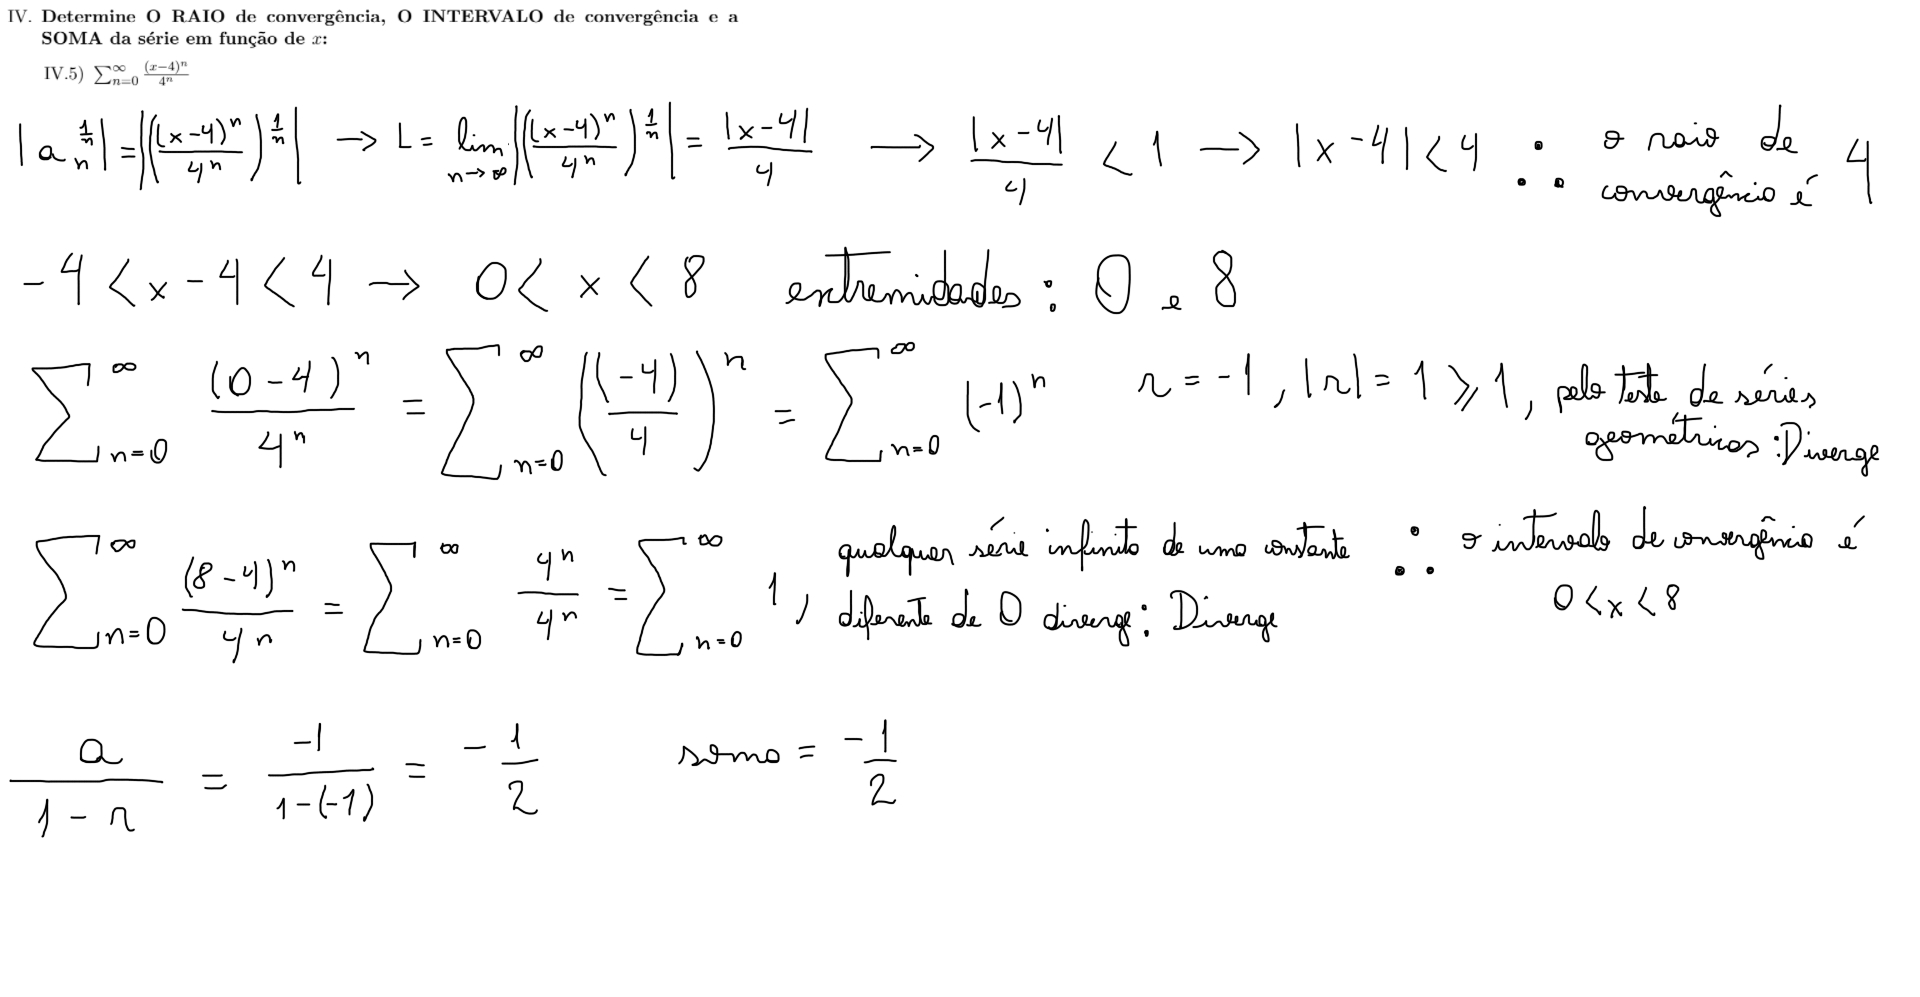 IV. Determine O RAIO de convergência, O INTERVALO de convergência e a
SOMA da série em função de x:
IV.5) ∑_{n=0}^{∞} (x−4)^n / 4^n
|a_n^{1/n}| = |((x-4)^n / 4^n)^{1/n}| → L = lim_{n→∞} |((x-4)^n / 4^n)^{1/n}| = |x-4| / 4 → |x-4| / 4 < 1 → |x-4| < 4 ∴ o raio de convergência é 4
-4 < x - 4 < 4 → 0 < x < 8 extremidades: 0 e 8
∑_{n=0}^{∞} (0-4)^n / 4^n = ∑_{n=0}^{∞} ((-4) / 4)^n = ∑_{n=0}^{∞} (-1)^n r = -1, |r| = 1 ⩾ 1, pelo teste de séries geométricas: Diverge
∑_{n=0}^{∞} (8-4)^n / 4^n = ∑_{n=0}^{∞} 4^n / 4^n = ∑_{n=0}^{∞} 1, qualquer série infinita de uma constante diferente de 0 diverge: Diverge ∴ o intervalo de convergência é 0 < x < 8
a / (1 - r) = -1 / (1-(-1)) = - 1 / 2 soma = - 1 / 2